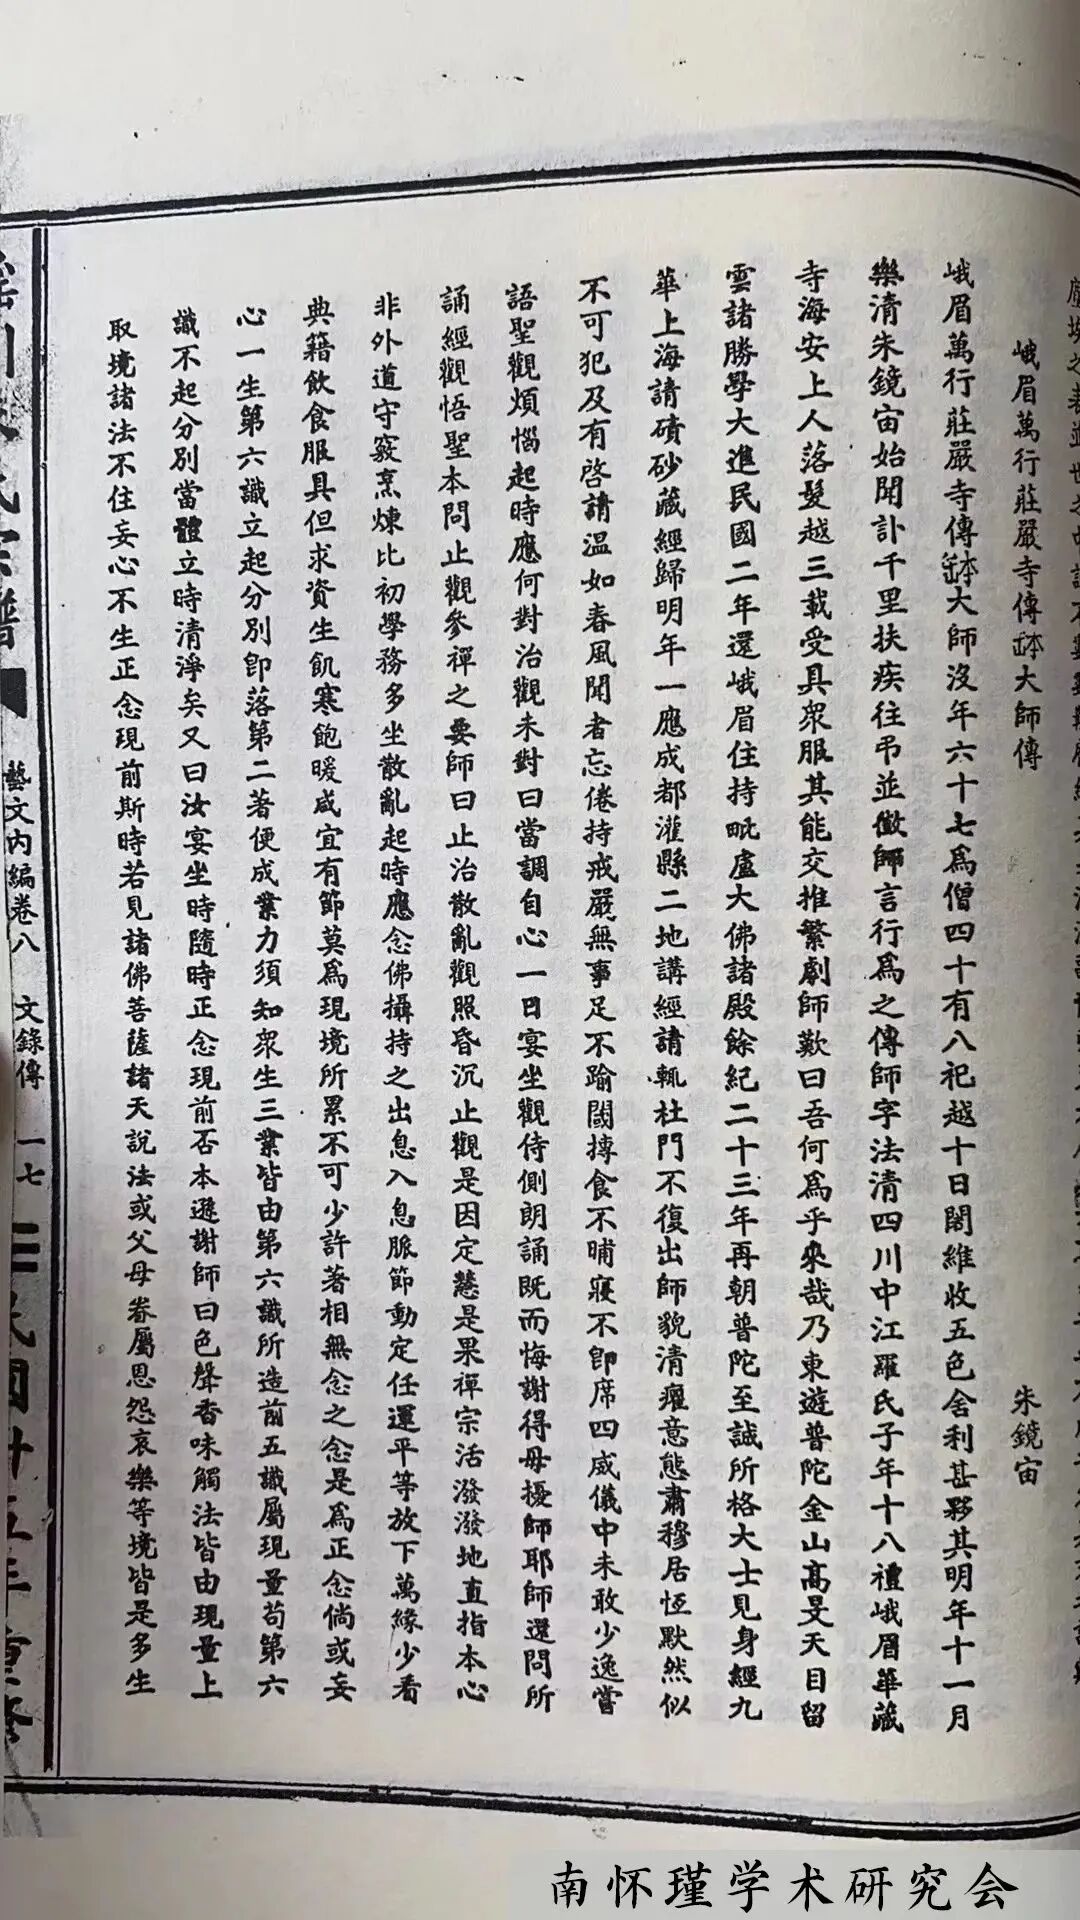 峨眉萬行莊嚴寺傳鉢大師傳 朱鏡宙
峨眉萬行莊嚴寺傳鉢大師沒年六十七爲僧四十有八祀越十日闍維收五色舍利甚夥其明年十一月
樂清朱鏡宙始聞訃千里扶疾往弔並徵師言行爲之傳師字法清四川中江羅氏子年十八禮峨眉華藏
寺海安上人落髮越三載受具衆服其能交推繁劇師歎曰吾何爲乎來哉乃東遊普陀金山高旻天目留
雲諸勝學大進民國二年還峨眉住持毗盧大佛諸殿餘紀二十三年再朝普陀至誠所格大士見身經九
華上海請磧砂藏經歸明年一應成都灌縣二地講經請輒杜門不復出師貌清癯意態肅穆居恆默然似
不可犯及有啓請溫如春風聞者忘倦持戒嚴無事足不踰閾摶食不晡寢不卽席四威儀中未敢少逸嘗
語聖觀煩惱起時應何對治觀未對曰當調自心一日宴坐觀侍側朗誦旣而悔謝得毋擾師耶師還問所
誦經觀悟聖本問止觀參禪之要師曰止治散亂觀照昏沉止觀是因定慧是果禪宗活潑潑地直指本心
非外道守竅烹煉比初學務多坐散亂起時應念佛攝持之出息入息脈節動定任運平等放下萬緣少看
典籍飲食服具但求資生飢寒飽暖咸宜有節莫爲現境所累不可少許著相無念之念是爲正念倘或妄
心一生第六識立起分別卽落第二著便成業力須知衆生三業皆由第六識所造前五識屬現量苟第六
識不起分別當體立時清淨矣又曰汝宴坐時隨時正念現前否本遜謝師曰色聲香味觸法皆由現量上
取境諸法不住妄心不生正念現前斯時若見諸佛菩薩諸天說法或父母眷屬恩怨哀樂等境皆是多生
藝文內編卷八 文錄傳 一七
南怀瑾学术研究会